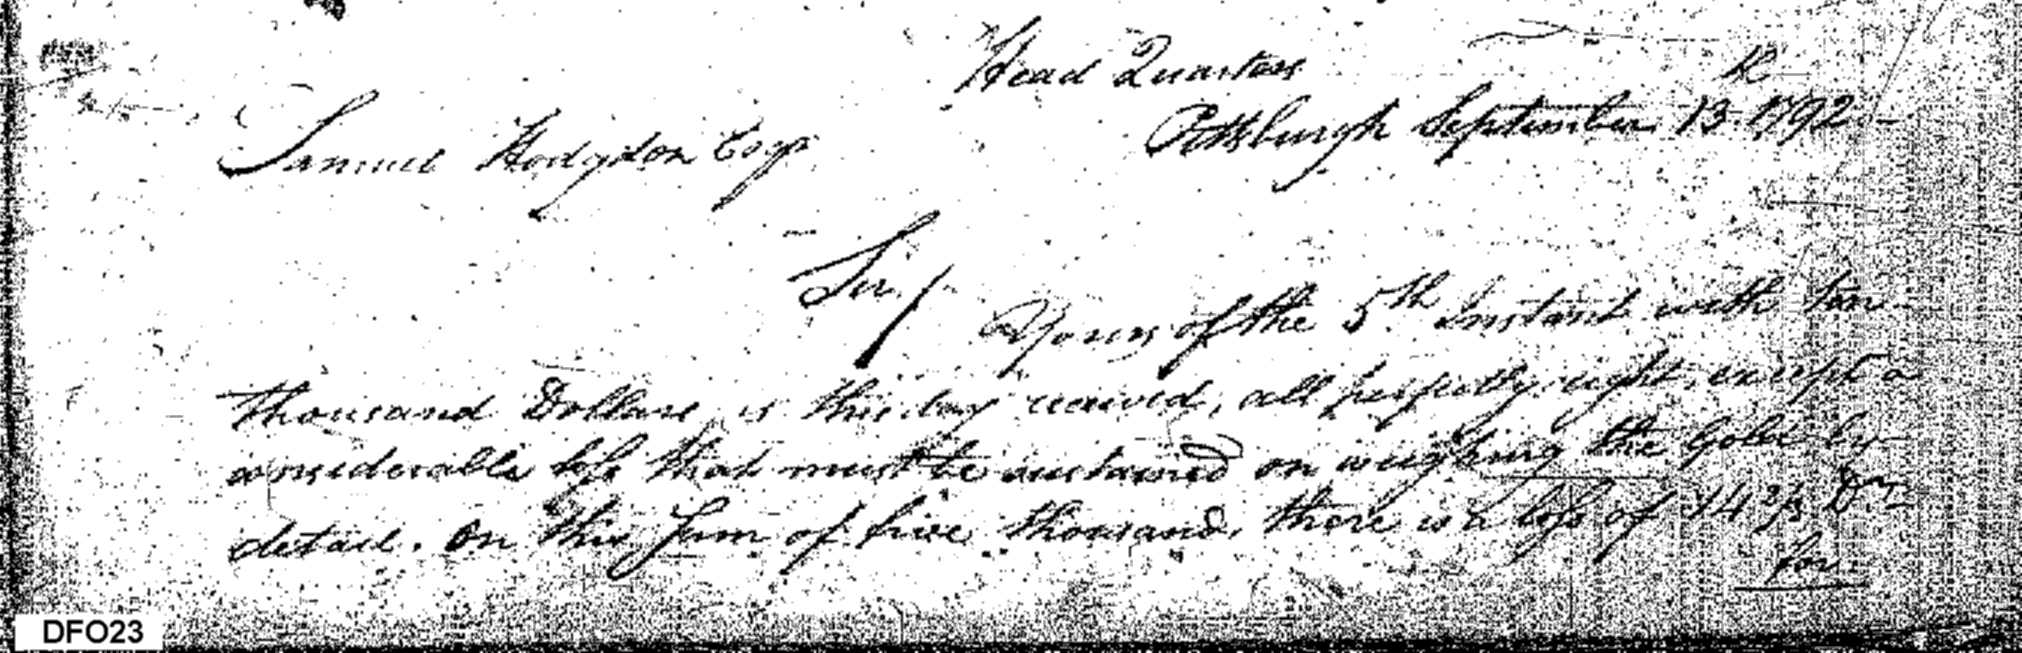 Head Quarters
Pittsburgh September 13. 1792
Samuel Hodgdon Esqr
Sir/
Yours of the 5th Instant with ten
thousand Dollars is this day received, all perfectly right, except a
considerable loss that must be sustained on weighing the Gold by
detail. On this Sum of five thousand, there is a loss of 14 2/3 Drs
for
DFO23